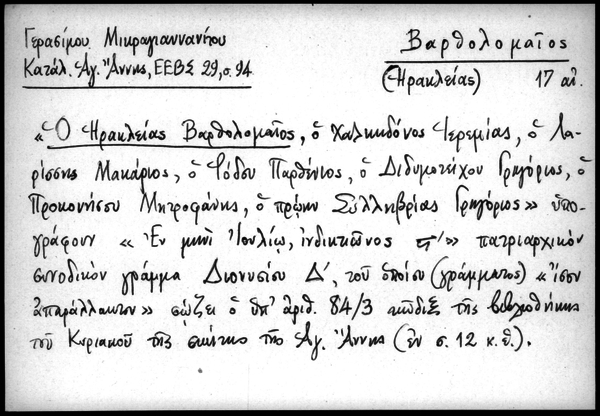 Γερασίμου Μικραγιαννανίτου
Βαρθολομαῖος
Κατάλ. Ἁγ. Ἄννης, ΕΕΒΣ 29, σ. 94
(Ἡρακλείας) 17 αἰ.
«Ὁ Ἡρακλείας Βαρθολομαῖος, ὁ Χαλκηδόνος Ἱερεμίας, ὁ Λα-
ρίσσης Μακάριος, ὁ Ῥόδου Παρθένιος, ὁ Διδυμοτείχου Γρηγόριος, ὁ
Προκονήσου Μητροφάνης, ὁ πρώην Συλληβρίας Γρηγόριος» ὑπο-
γράφουν «Ἐν μηνὶ Ἰουλίῳ, ἰνδικτιῶνος» πατριαρχικὸν
συνοδικὸν γράμμα Διονυσίου Δ΄, τοῦ ὁποίου (γράμματος) «ἴσον
ἀπαράλλακτον» σώζει ὁ ὑπ' ἀριθ. 84/3 κῶδιξ τῆς βιβλιοθήκης
τοῦ Κυριακοῦ τῆς σκήτης τῆς Ἁγ. Ἄννης (ἐν σ. 12 κ.ἑ.).